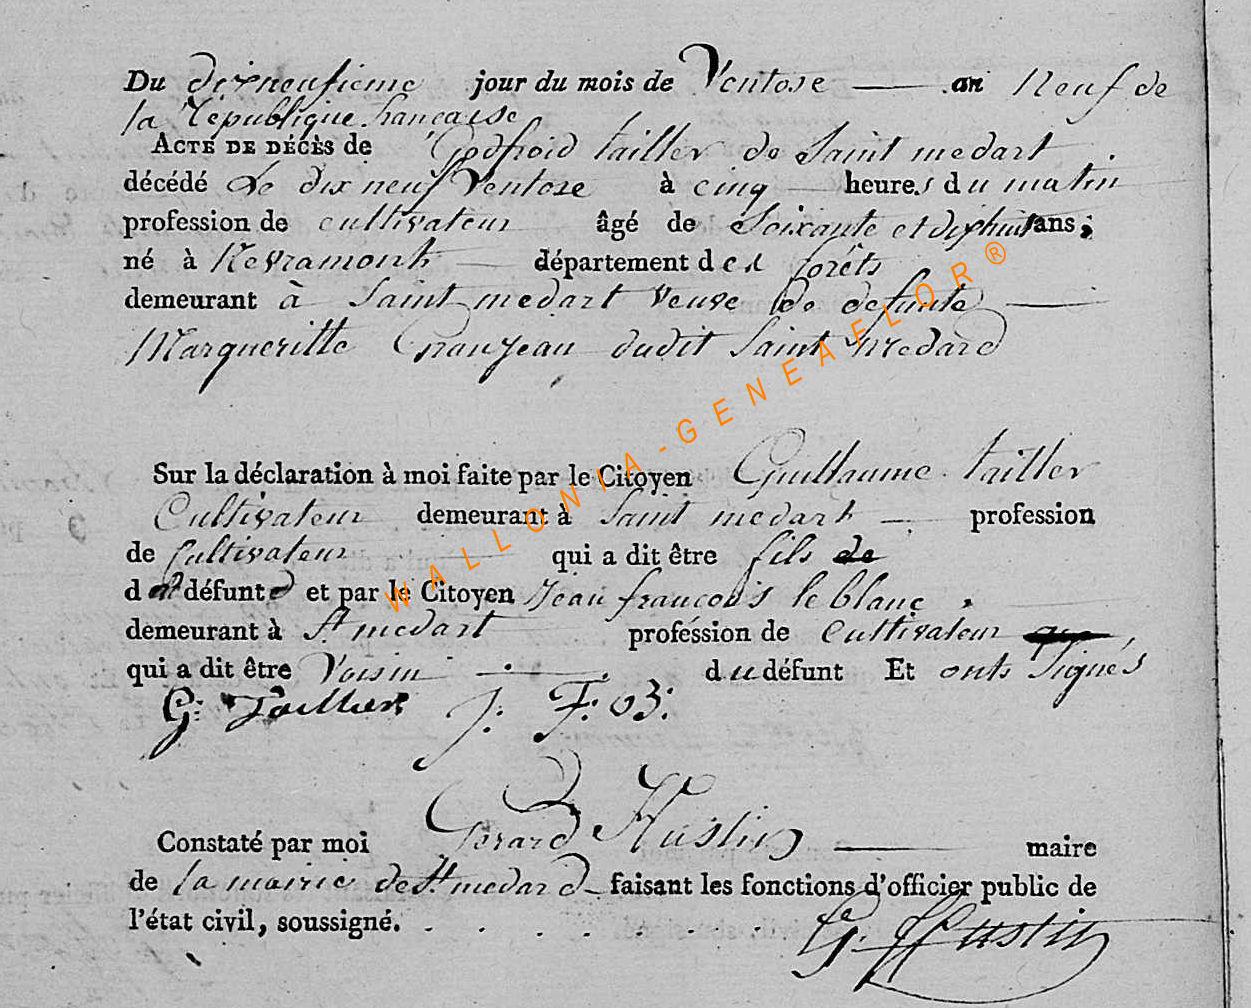 Du dixneufieme jour du mois de Ventose an Neuf de
la République francaise
ACTE DE DÉCÈS de Godfroid tailler de Saint medart
décédé Le dix neuf Ventose à cinq heures du matin
profession de cultivateur âgé de Soixante et dixhuit ans;
né à Nevramonts département des forêts
demeurant à Saint medart veuve de defunte
Margueritte dudit Saint medard
Sur la déclaration à moi faite par le Citoyen Guillaume tailler
Cultivateur demeurant à Saint medart profession
de Cultivateur qui a dit être fils de
d défunt et par le Citoyen Jean francois le blanc
demeurant à St medart proféssion de Cultivateur
qui a dit être Voisin du défunt Et onts Signés
G: Taillier J: F: 03:
Constaté par moi Gerard Hustin maire
de la mairie de St medard faisant les fonctions d'officier public de
l'état civil, soussigné.
G. Hustin
WALLONIA-GENEAFLOR®